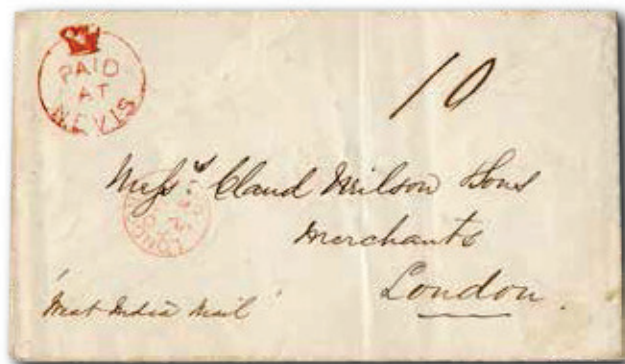 PAID
AT
NEVIS
10
Mess.rs Claud Milson Sons
Merchants
LONDON
London.
'West India Mail'